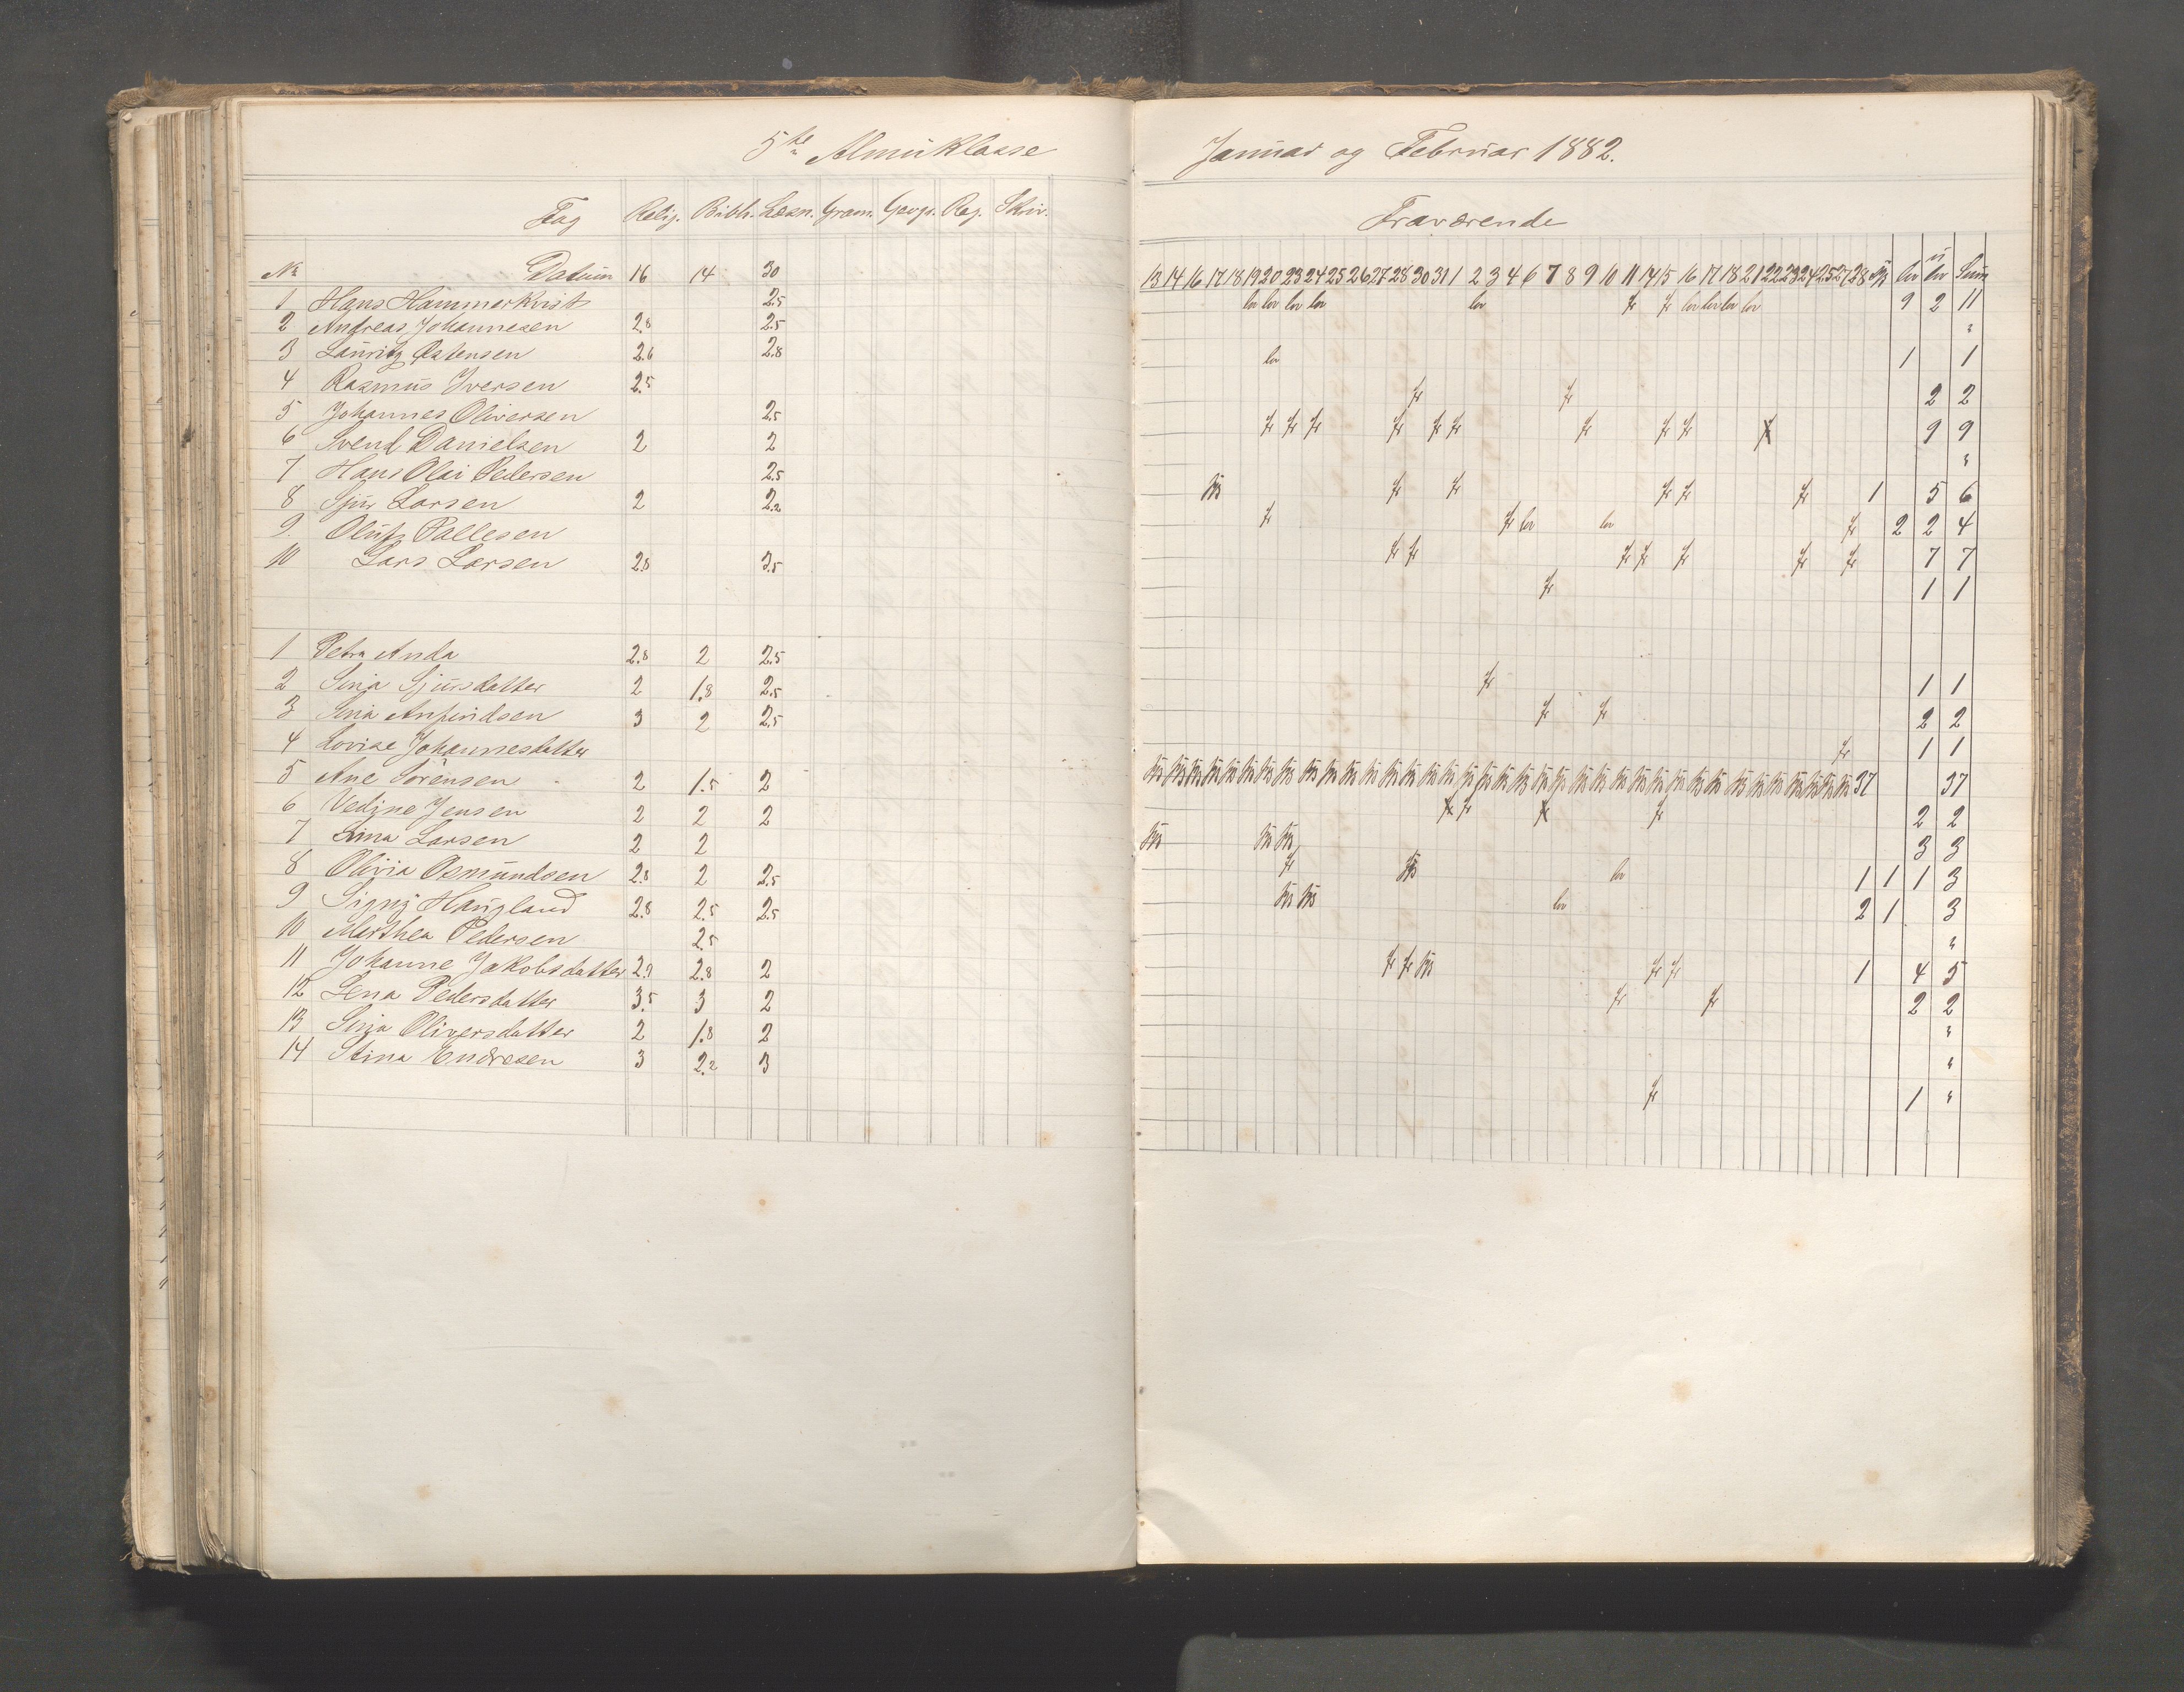 5te Almuklasse
Fag Relig. Bibh. Læsn. Gram. Geogr. Reg. Skriv.
No Datum 16 14 30
1 Hans Hammerkvist 2.5
2 Andreas Johannesen 2.8 2.5
3 Lauritz Østensen 2.6 2.8
4 Rasmus Iversen 2.5
5 Johannes Oliversen 2.5
6 Svend Danielsen 2 2
7 Hans Olai Pedersen 2.5
8 Sjur Larsen 2 2.2
9. Oluf Pallesen
10 Lars Larsen 2.8 3.5
1 Petra Anda 2.8 2 2.5
2 Sina Sjursdatter 2 1.8 2.5
3 Sina Anfindsen 3 2 2.5
4 Lovise Johannesdatter
5 Ane Sörensen 2 1.5 2
6 Vedine Jensen 2 2 2
7 Lina Larsen 2 2
8 Olivia Osmundsen 2.8 2 2.5
9 Signy Haugland 2.8 2.5 2.5
10 Marthea Pedersen 2.5
11 Johanne Jakobsdatter 2.9 2.8 2
12 Lena Pedersdatter 3.5 3 2
13 Sina Oliversdatter 2 1.8 2
14 Stina Endresen 3 2.2 3
Januar og Februar 1882.
Fraværende
13 14 16 17 18 19 20 23 24 25 26 27 28 30 31 1 2 3 4 6 7 8 9 10 11 14 15 16 17 18 21 22 23 24 25 27 28 syg lov u lov Sum
lov lov lov lov lov fr fr lov lov lov lov 9 2 11
"
lov 1 1
fr fr 2 2
fr fr fr fr fr fr fr fr fr 9 9
"
syg fr fr fr fr fr 1 5 6
fr fr lov lov fr 2 2 4
fr fr fr fr fr fr fr 7 7
fr 1 1
fr 1 1
fr fr 2 2
fr 1 1
37 37
fr fr 2 2
syg syg syg 3 3
fr syg lov 1 1 1 3
syg syg lov 2 1 3
"
fr fr syg fr fr 1 4 5
fr fr 2 2
"
"
fr 1 "